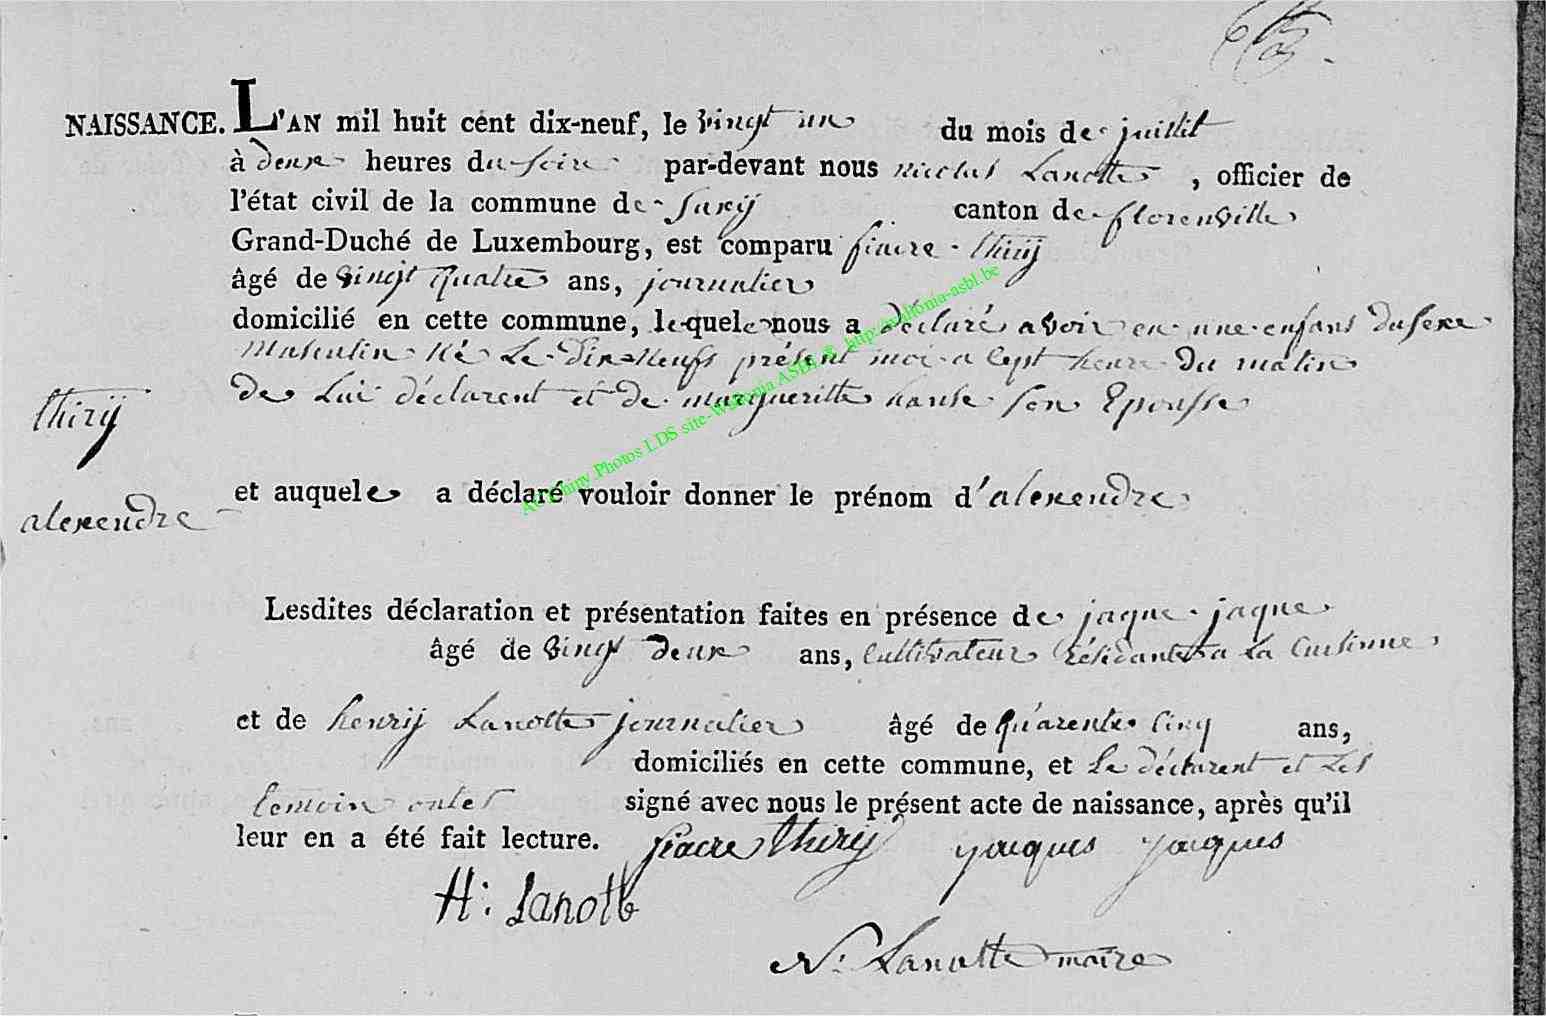 65.
NAISSANCE. L'AN mil huit cent dix-neuf, le vingt un du mois de juillet
à deux heures du soire par-devant nous nicolas Lanotte, officier de
l'état civil de la commune de canton de florenville
Grand-Duché de Luxembourg, est comparu fiacre thirÿ
âgé de vingt quatre ans, journalier
domicilié en cette commune, lequele nous a déclaré avoir eu une enfant du sexe
masculin né le dix neufs présent moi a sept heure du matin
de lui déclarent et de margueritte son Epousse
thirÿ
et auquele a déclaré vouloir donner le prénom d'alexendre
alexendre
Lesdites déclaration et présentation faites en présence de jaque jaque
âgé de vingt deux ans, cultivateur résidante a la cuisinne
et de henrÿ Lanotte journalier âgé de quarente cinq ans,
domiciliés en cette commune, et le déclarent et les
temoin ontes signé avec nous le présent acte de naissance, après qu'il
leur en a été fait lecture. fiacre thirÿ yacques yacques
H: Lanotte
N: Lanotte maire
ACThiny Photos LDS site-Wallonia ASBL © http://wallonia-asbl.be